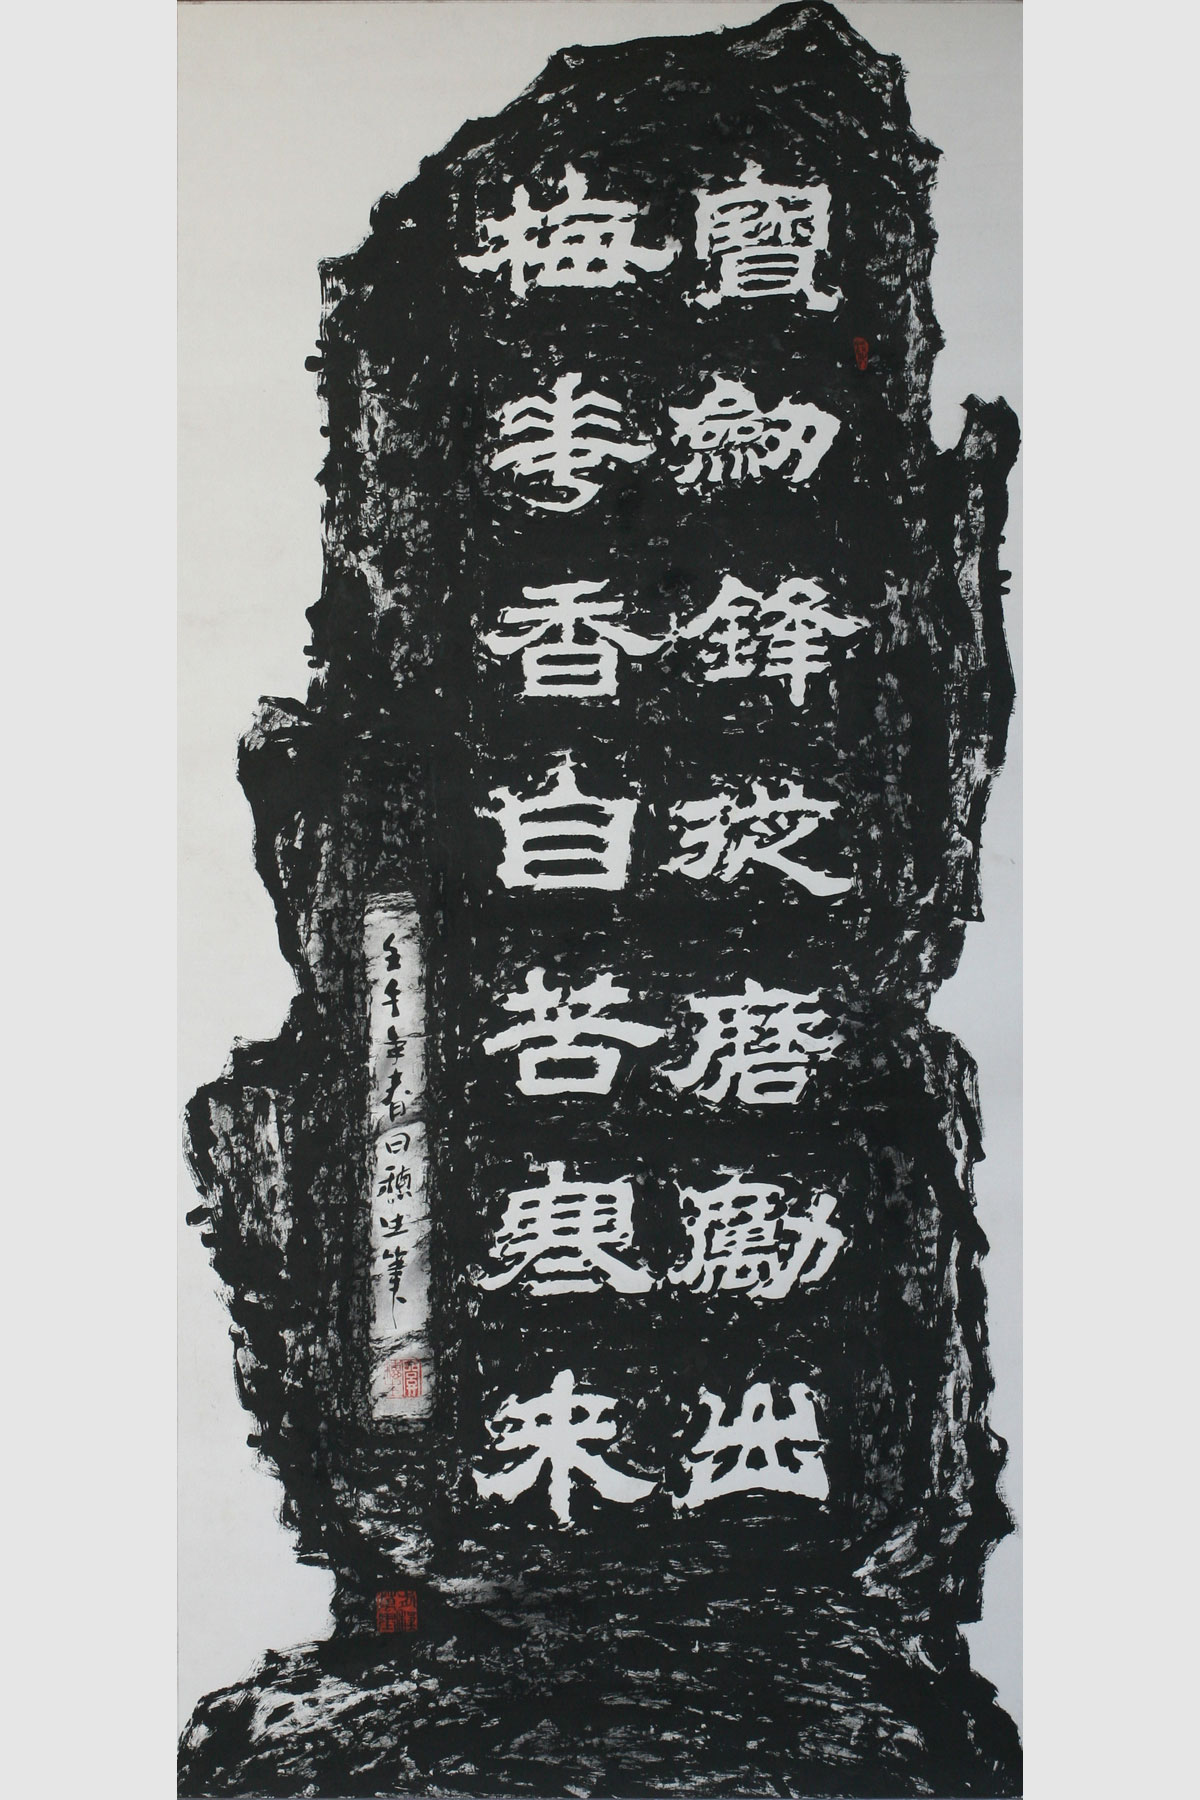 寶劒鋒從磨勵出
梅花香自苦寒來
壬午年春日穗生筆